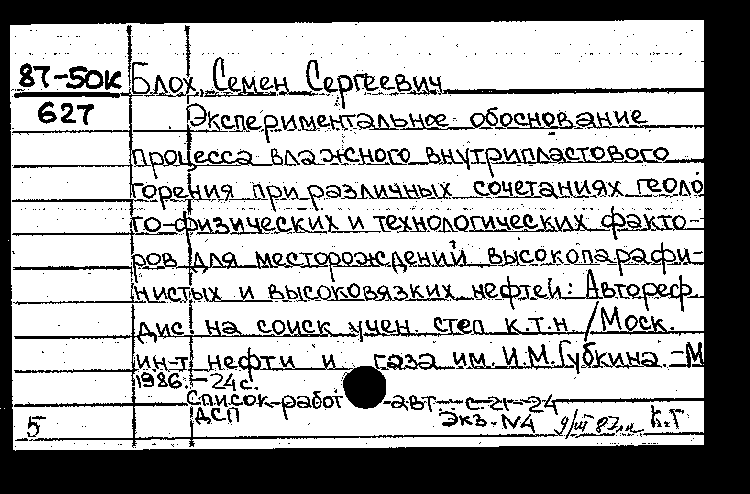 87-50К Блох, Семен Сергеевич
627 Экспериментальное обоснование
процесса влажного внутрипластового
горения при различных сочетаниях геоло
го-физических и технологических факто-
ров для месторождений высокопарафи-
нистых и высоковязких нефтей: Автореф.
дис. на соиск учен. степ к.т.н /Моск.
ин-т нефти и газа им. И.М.Губкина.-М
1986.-24с.
Список работ авт с 21-24
ДСП Экз. N4
5 К.Г